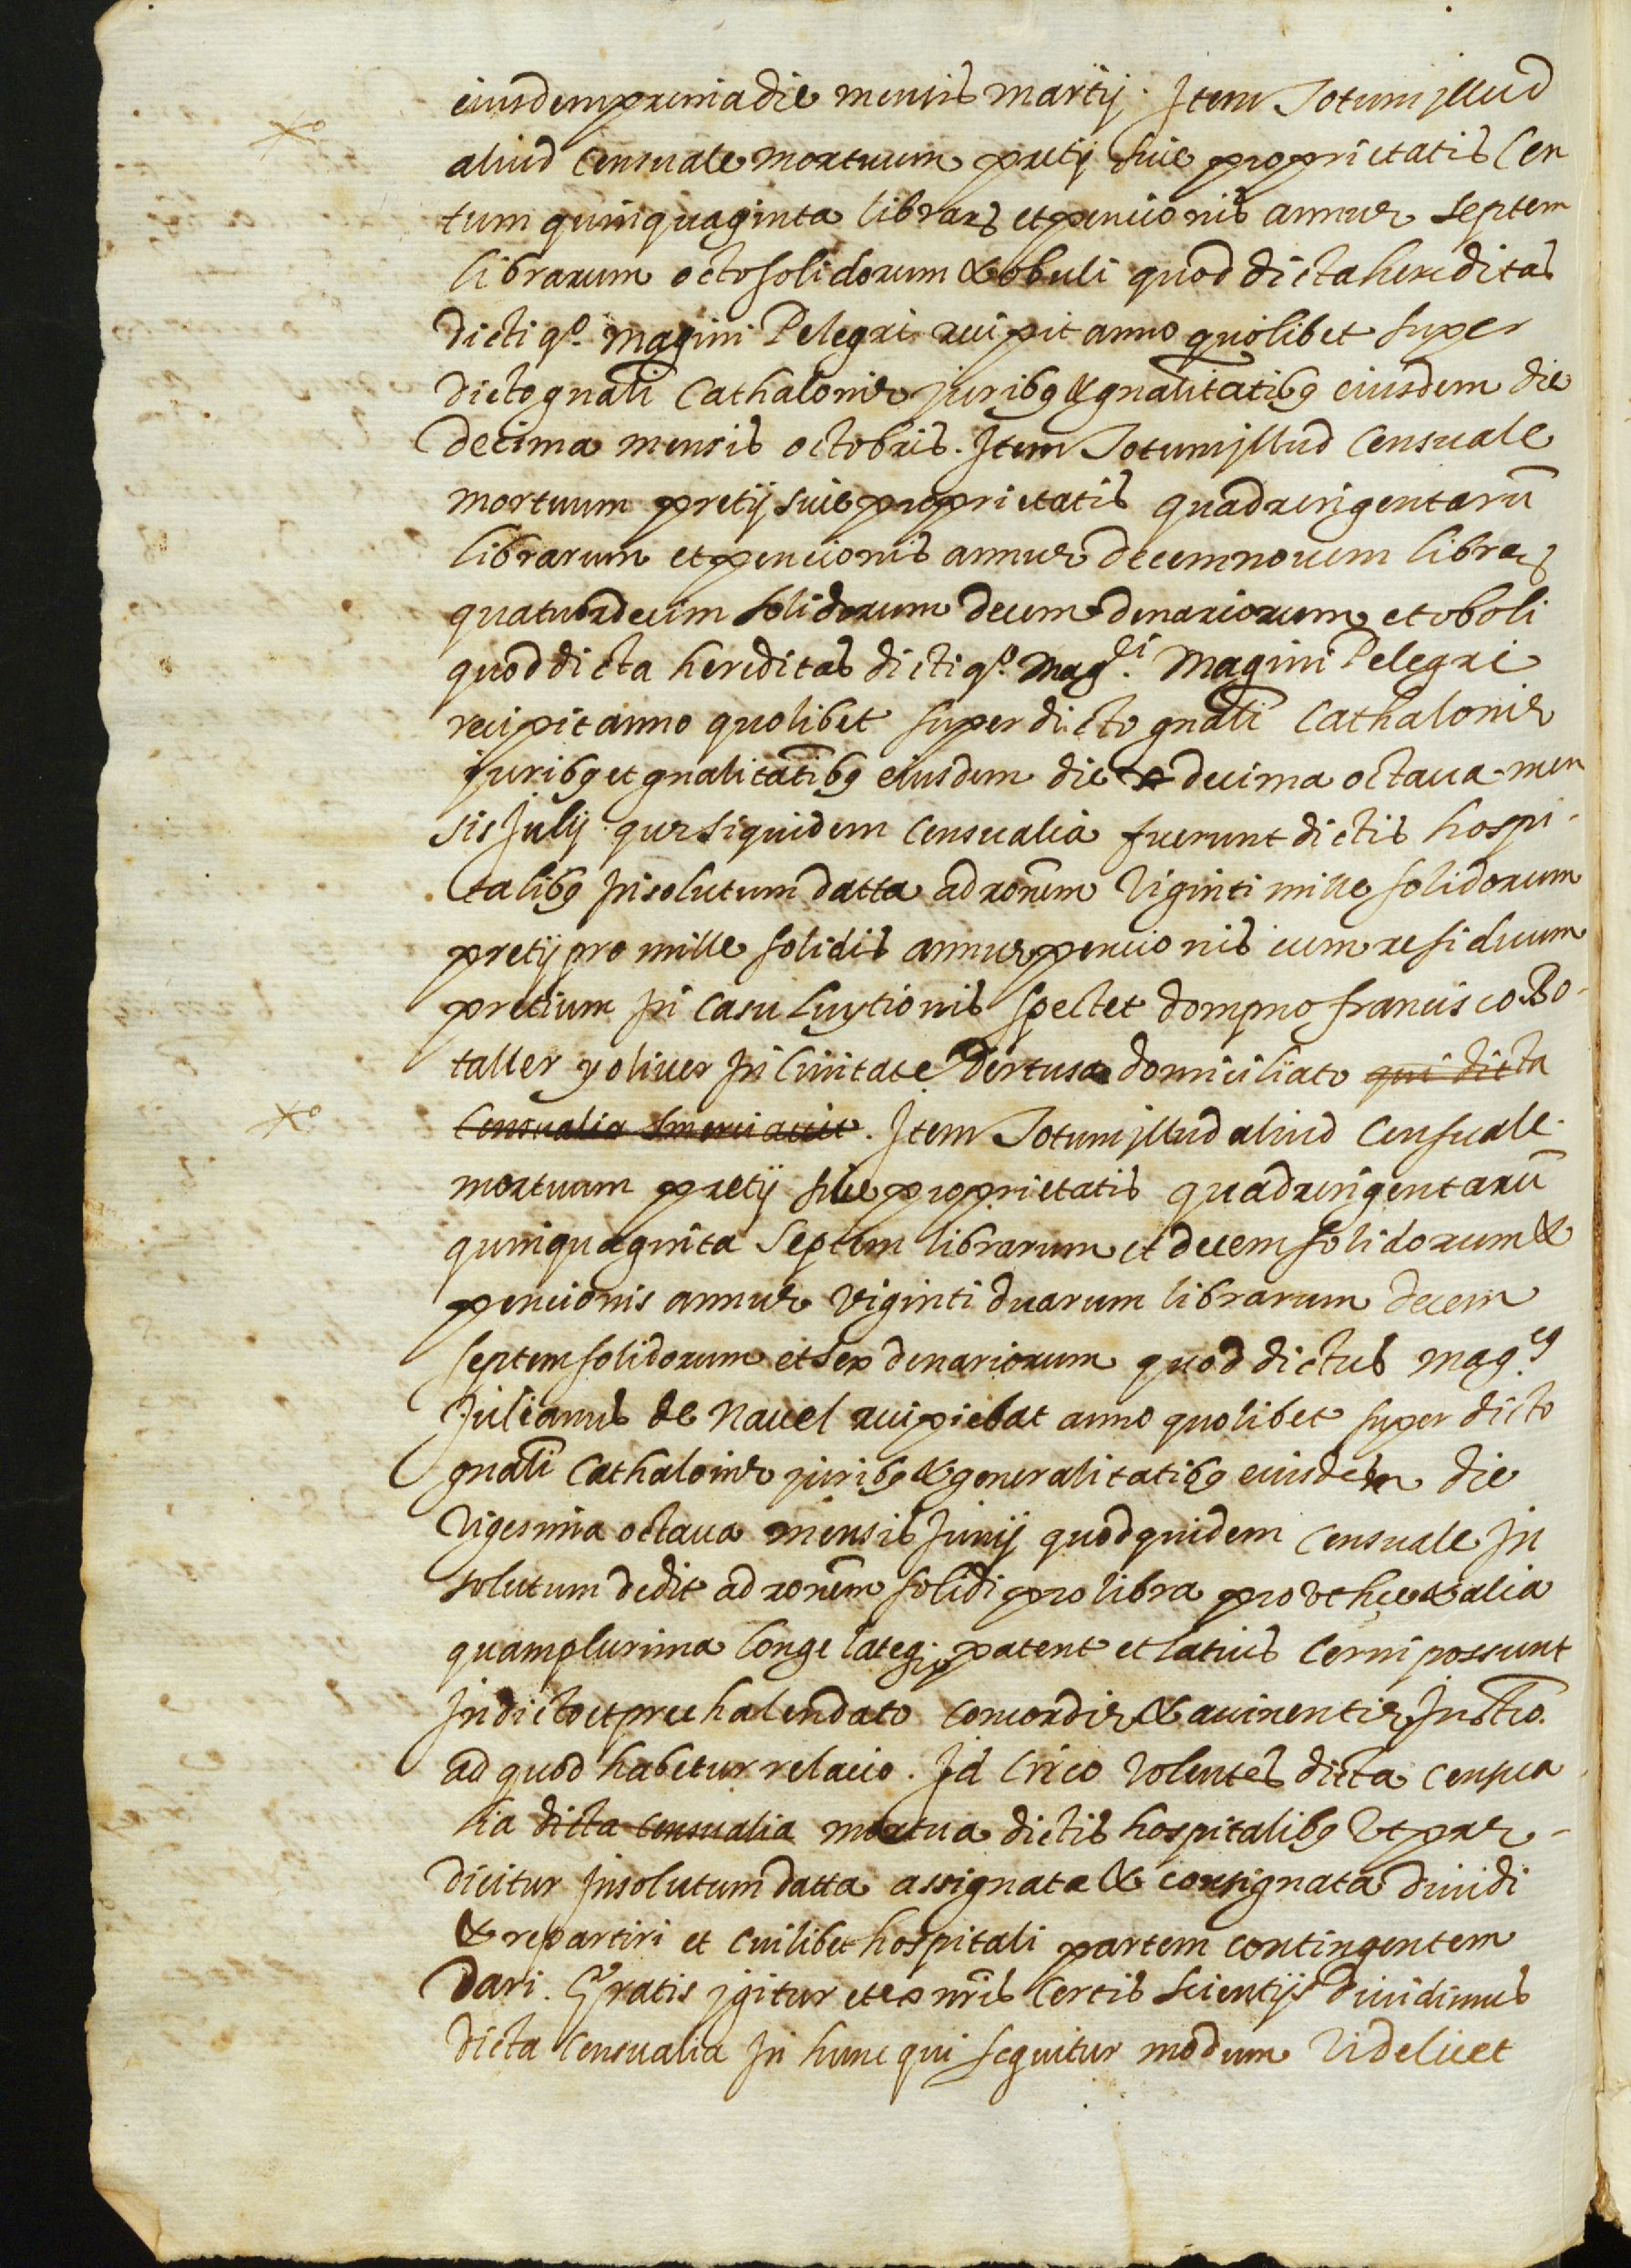 eiusdem prima die mensis martij. Item Totum illud
aliud Censuale mortuum pretij sive proprietatis Cen
tum quinquaginta librarꝫ et pencionis annue septem
librarum octo solidorum & obuli quod dicta hereditas
dicti qº. Magini Pelegri recipit anno quolibet super
dicto gnāli Cathalonie juribꝰ & gnālitatibꝰ eiusdem die
decima mensis octobris. Item Totum illud Censuale
mortuum pretij sive proprietatis quadringentarū
librarum et pencionis annue decem novem librarꝫ
quatuordecim solidorum decem denariorum et oboli
quod dicta hereditas dicti qº. Mag.ci Magini Pelegri
recipit anno quolibet super dicto gnāli Cathalonie
juribꝰ et gnālitatibꝰ eiusdem die decima octava men
sis Julij. que siquidem Censualia fuerunt dictis hospi-
talibꝰ in solutum datta ad ronēm viginti mille solidorum
pretij pro mille solidis annue pencionis cum residuum
pretium In Casu Luytionis spectet dompno francisco Bo-
taller y oliver In Civitate Dertusae domiciliato qui dicta
Censualia . Item Totum illud aliud Censuale
mortuum pretij sive proprietatis quadringentarū
quinquaginta septem librarum et decem solidorum &
pencionis annue viginti duarum librarum decem
septem solidorum et sex denariorum quod dictus mag.cꝰ
Julianus de Navel recipiebat anno quolibet super dicto
gnāli Cathalonie juribꝰ & generalitatibꝰ eiusdem die
vigesima octava mensis Junij quod quidem Censuale In
solutum dedit ad ronēm solidi pro libra prout hec & alia
quamplurima longe lateqꝫ patent et latius cerni possunt
In dicto et pre kalendato concordie & avinentie Instrō.
ad quod habetur relacio. Id Circo volentes dicta censua
lia dicta censualia mortua dictis hospitalibꝰ ut pre-
dicitur In solutum datta assignata & consignata dividi
& repartiri et cuilibet hospitali partem contingentem
dari. Gratis igitur et ex nrīs certis scientijs dividimus
dicta Censualia In hunc qui sequitur modum Videlicet